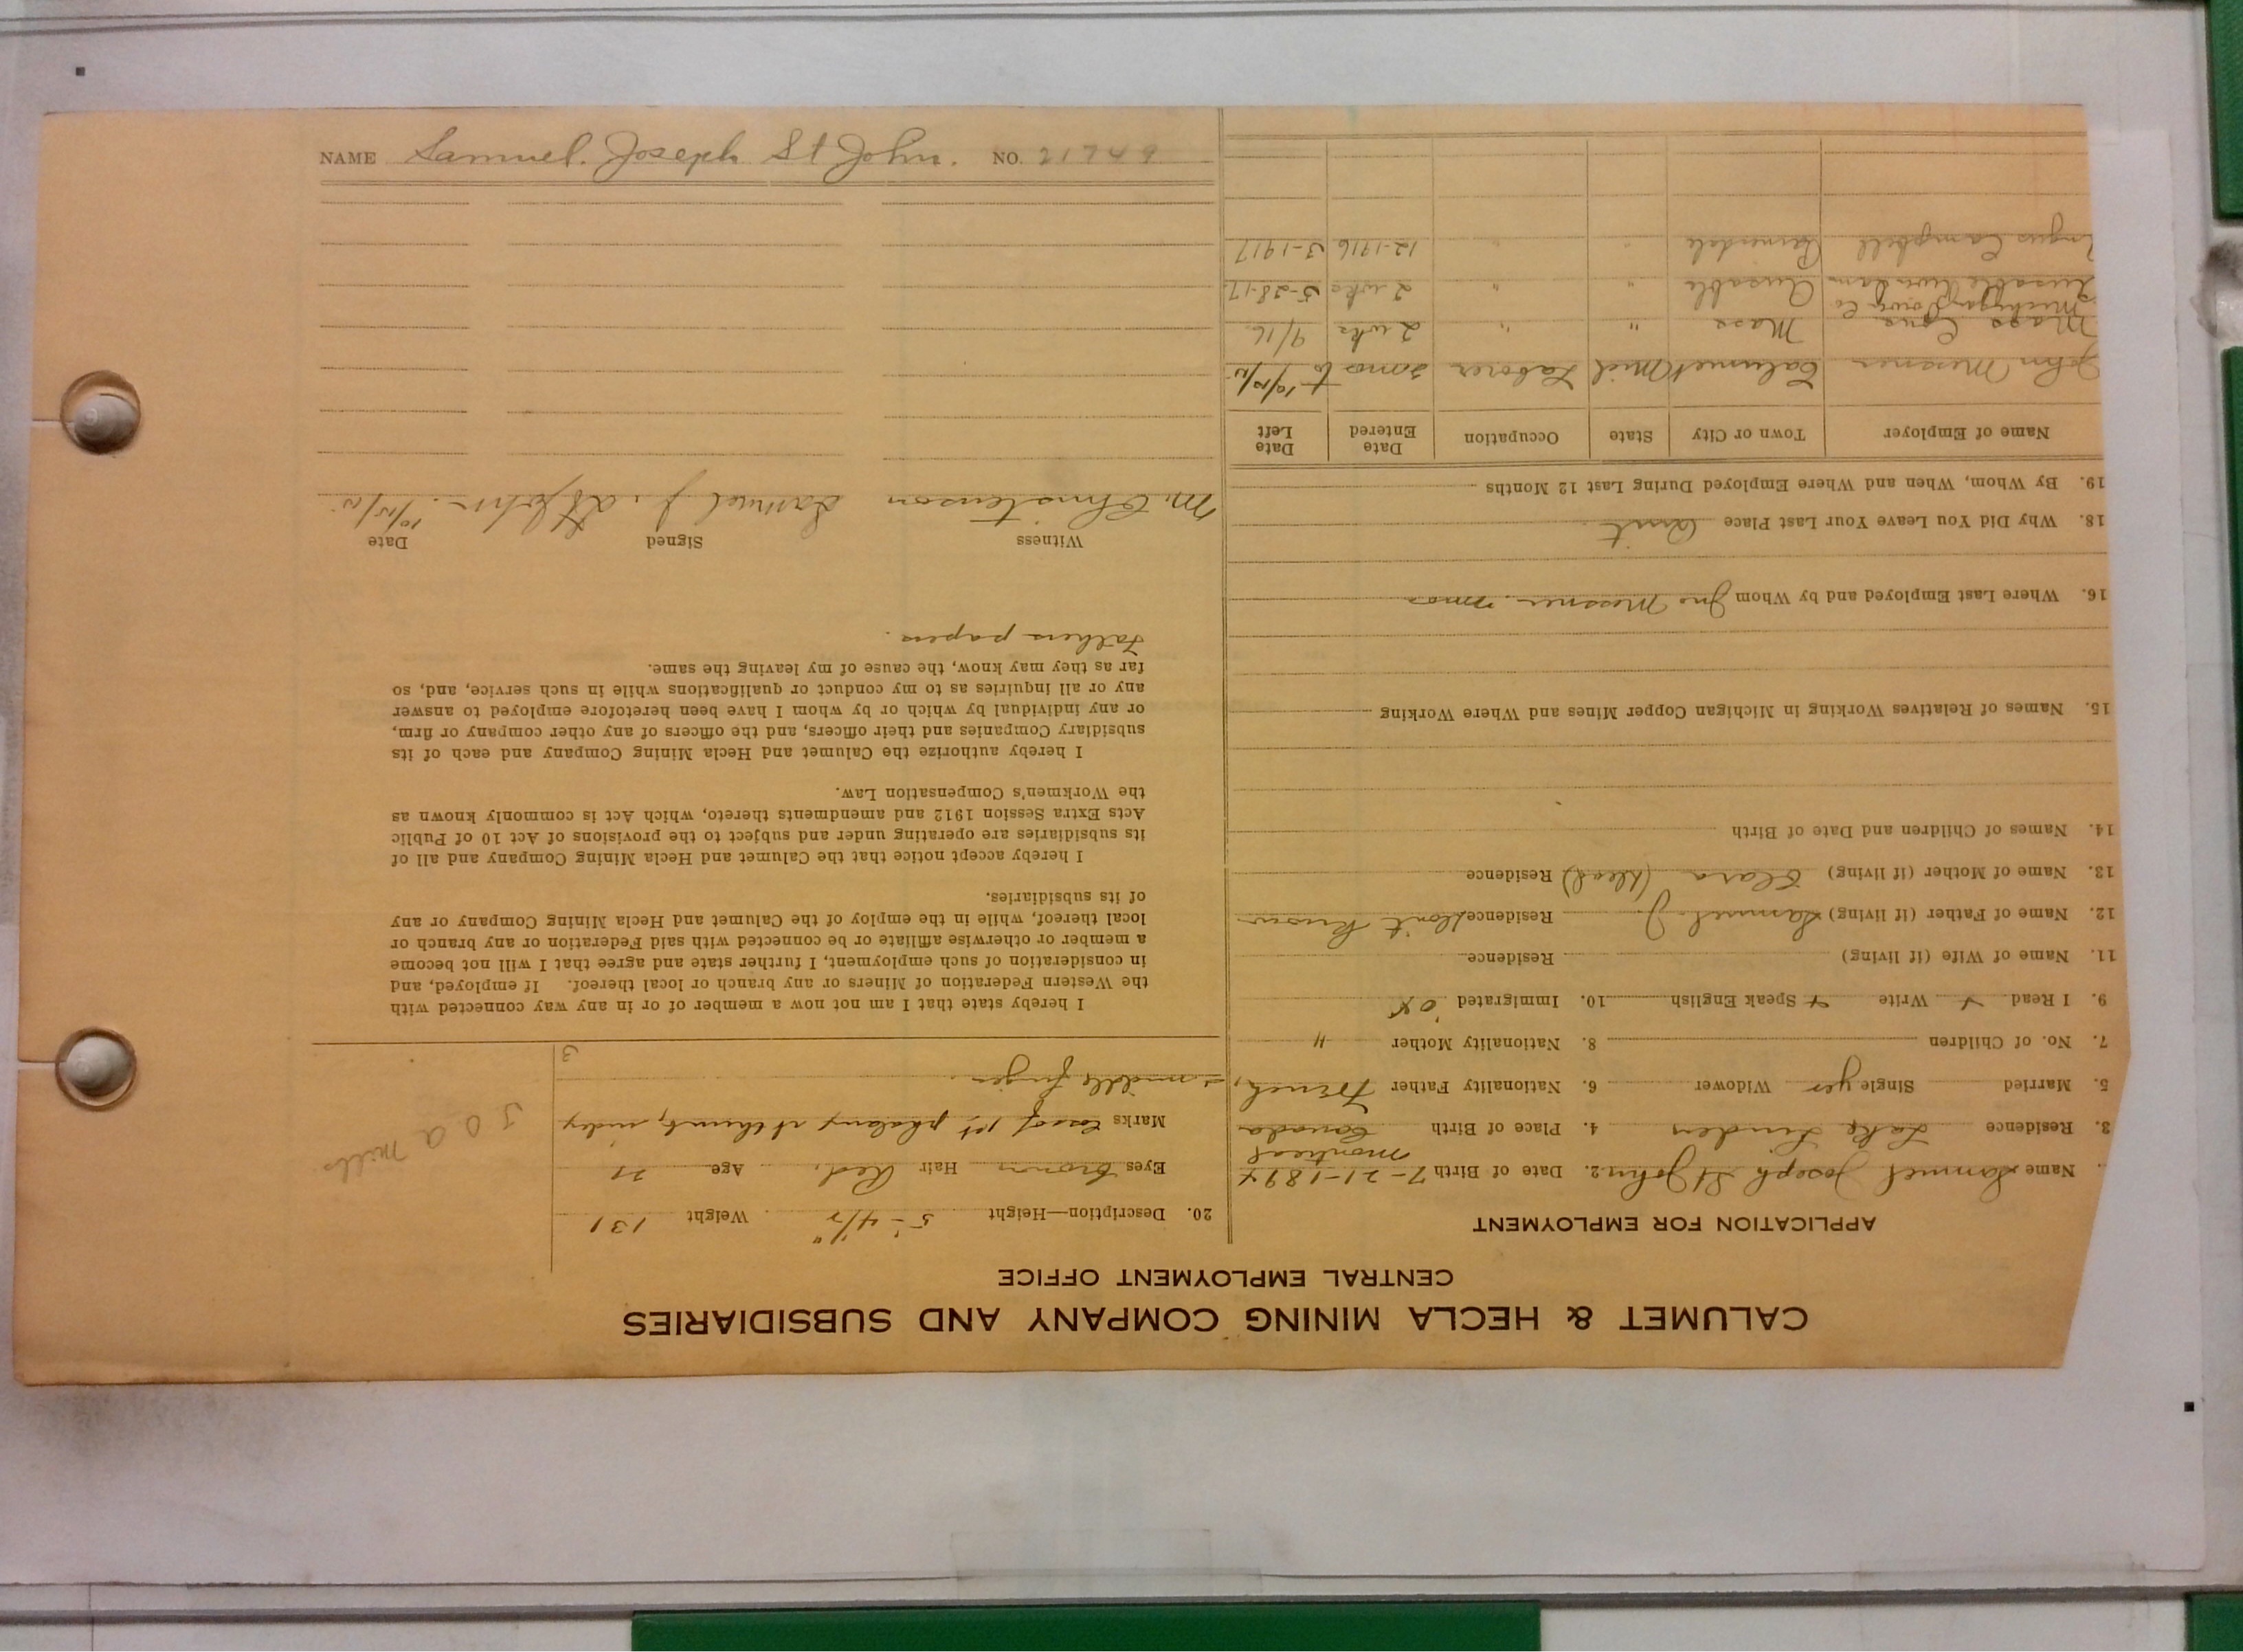 CALUMET & HECLA MINING COMPANY AND SUBSIDIARIES
CENTRAL EMPLOYMENT OFFICE
APPLICATION FOR EMPLOYMENT
Name Samuel Joseph St John 2. Date of Birth 7-21-1894
Montreal
3. Residence Lake Linden 4. Place of Birth Canada
5. Married Single yes Widower 6. Nationality Father French
7. No. of Children 8. Nationality Mother "
9. I Read Write Speak English 10. Immigrated
11. Name of Wife (if living) Residence
12. Name of Father (if living) Samuel J. Residence Don't Know
13. Name of Mother (if living) Clara (dead) Residence
14. Names of Children and Date of Birth
15. Names of Relatives Working in Michigan Copper Mines and Where Working
16. Where Last Employed and by Whom Jno Messner
18. Why Did You Leave Your Last Place
19. By Whom, When and Where Employed During Last 12 Months
Name of Employer Town or City State Occupation Date Entered Date Left
John Messner Calumet Mich Laborer
Mass Cons. Mass " " 2 wks 9/16
Michigan Power Co
Ausable " " 2 wks 5-28-17
Angus Campbell " " 12-1916 3-1917
20. Description—Height 5'-4½" Weight 131
Eyes brown Hair Red. Age
Marks Loss of 1st phalanx of thumb, index
middle finger.
3
I hereby state that I am not now a member of or in any way connected with
the Western Federation of Miners or any branch or local thereof. If employed, and
in consideration of such employment, I further state and agree that I will not become
a member or otherwise affiliate or be connected with said Federation or any branch or
local thereof, while in the employ of the Calumet and Hecla Mining Company or any
of its subsidiaries.
I hereby accept notice that the Calumet and Hecla Mining Company and all of
its subsidiaries are operating under and subject to the provisions of Act 10 of Public
Acts Extra Session 1912 and amendments thereto, which Act is commonly known as
the Workmen's Compensation Law.
I hereby authorize the Calumet and Hecla Mining Company and each of its
subsidiary Companies and their officers, and the officers of any other company or firm,
or any individual by which or by whom I have been heretofore employed to answer
any or all inquiries as to my conduct or qualifications while in such service, and, so
far as they may know, the cause of my leaving the same.
Fathers papers.
Witness Signed Date
M. Christenson Samuel J. St John
NAME Samuel. Joseph St John. NO. 21749